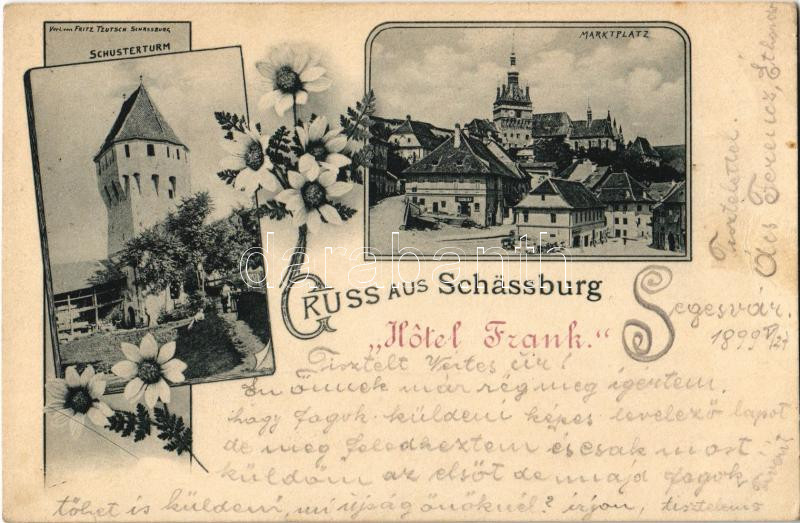 Verl. von FRITZ TEUTSCH SCHÄSSBURG
SCHUSTERTURM
MARKTPLATZ
darabanth
GRUSS AUS Schässburg
„Hôtel Frank.“
Segesvár.
1899 V/27
Tisztelt Vértes úr!
Én önnek már rég meg igértem,
hogy fogok küldeni képes levelező lapot
de meg feledkeztem és csak most
küldöm az elsőt de majd fogok
többet is küldeni, mi újság önöknél? irjon, tisztelems
Tisztelettel.
Ács Ferencz